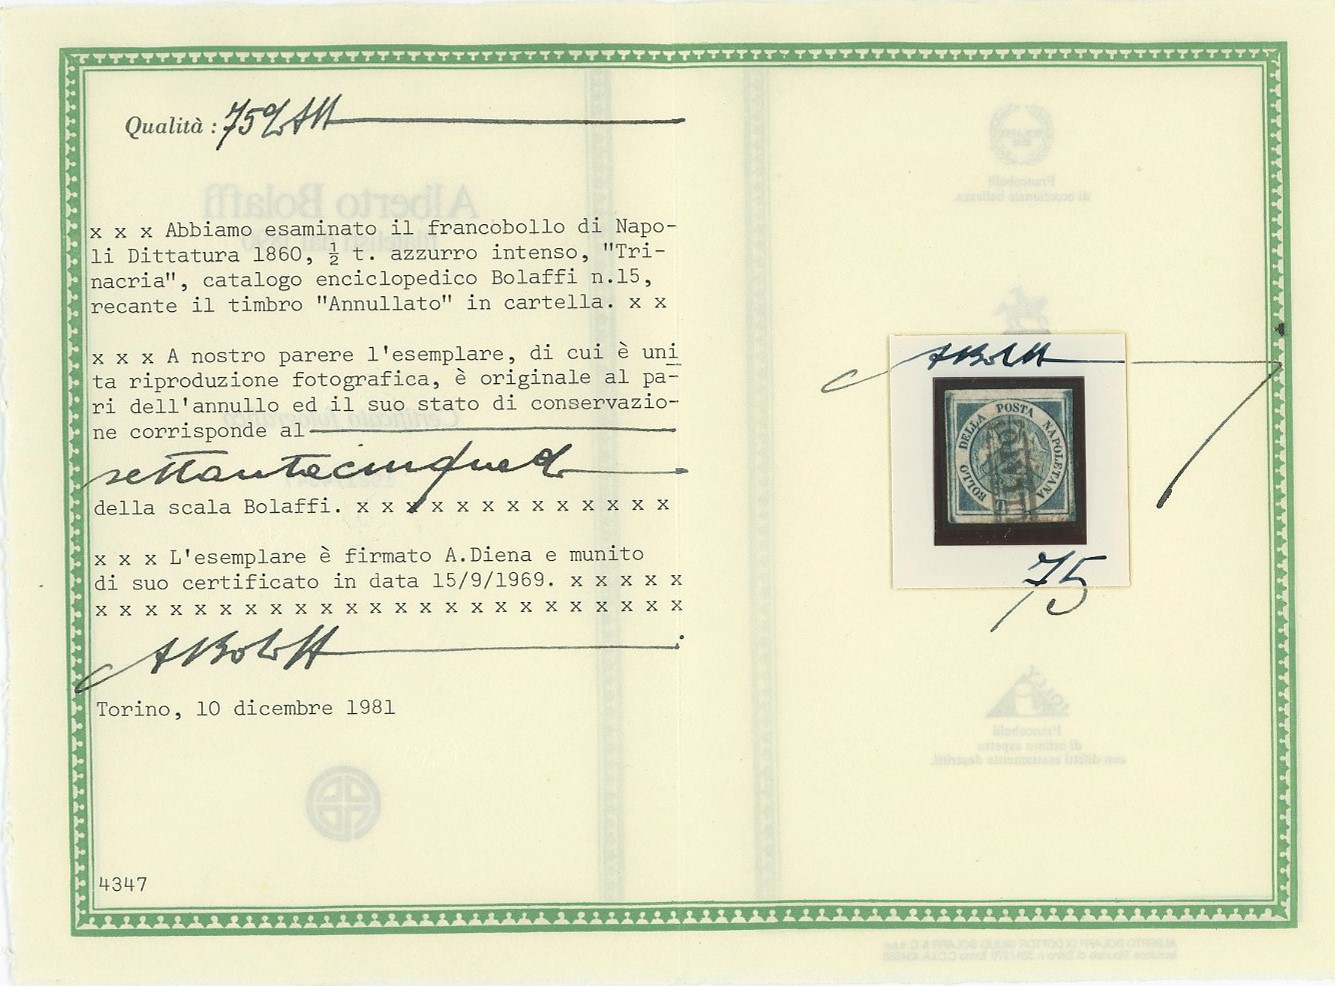 Qualità : 75%
x x x Abbiamo esaminato il francobollo di Napo-
li Dittatura 1860, ½ t. azzurro intenso, "Tri-
nacria", catalogo enciclopedico Bolaffi n.15,
recante il timbro "Annullato" in cartella. x x
x x x A nostro parere l'esemplare, di cui è uni
ta riproduzione fotografica, è originale al pa-
ri dell'annullo ed il suo stato di conservazio-
ne corrisponde al
settantacinque%
della scala Bolaffi. x x x x x x x x x x x x x
x x x L'esemplare è firmato A.Diena e munito
di suo certificato in data 15/9/1969. x x x x x
x x x x x x x x x x x x x x x x x x x x x x x x
ABolaffi
Torino, 10 dicembre 1981
4347
ABolaffi
BOLLO DELLA POSTA NAPOLETANA
75
Alberto Bolaffi
Francobolli
di eccezionale bellezza.
Francobolli
di ottimo aspetto
con difetti esattamente descritti.